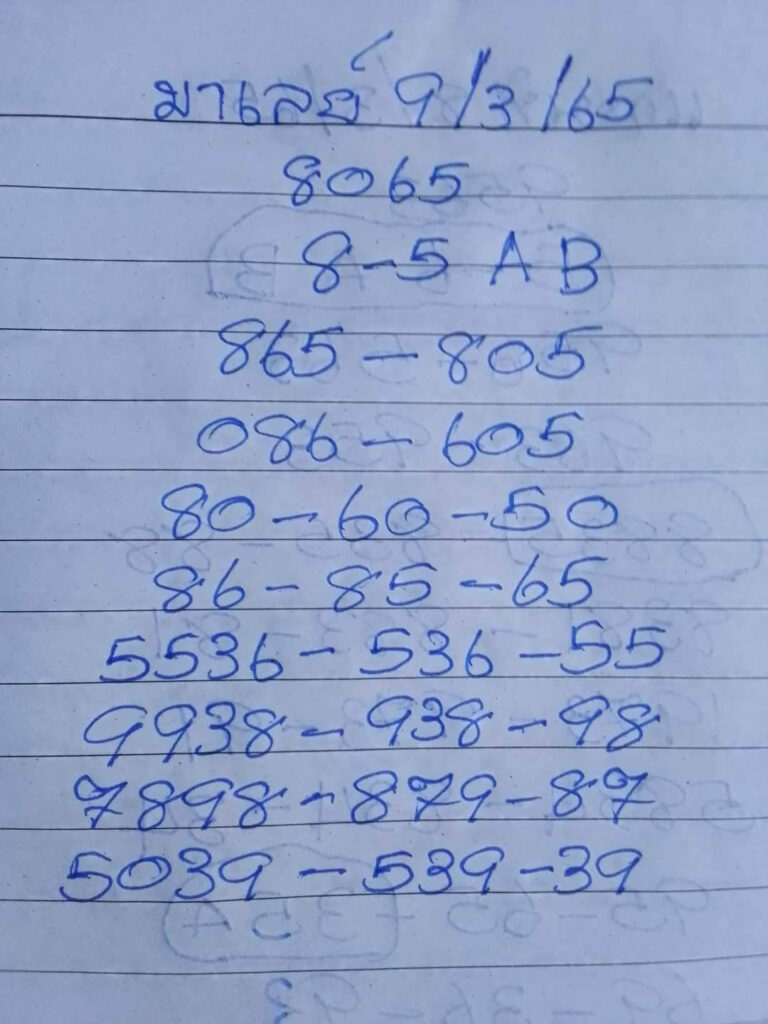 มาเลย์ 9/3/65
8065
8-5 A B
865-805
086-605
80-60-50
86-85-65
5536-536-55
9938-938-98
7898-879-87
5039-539-39